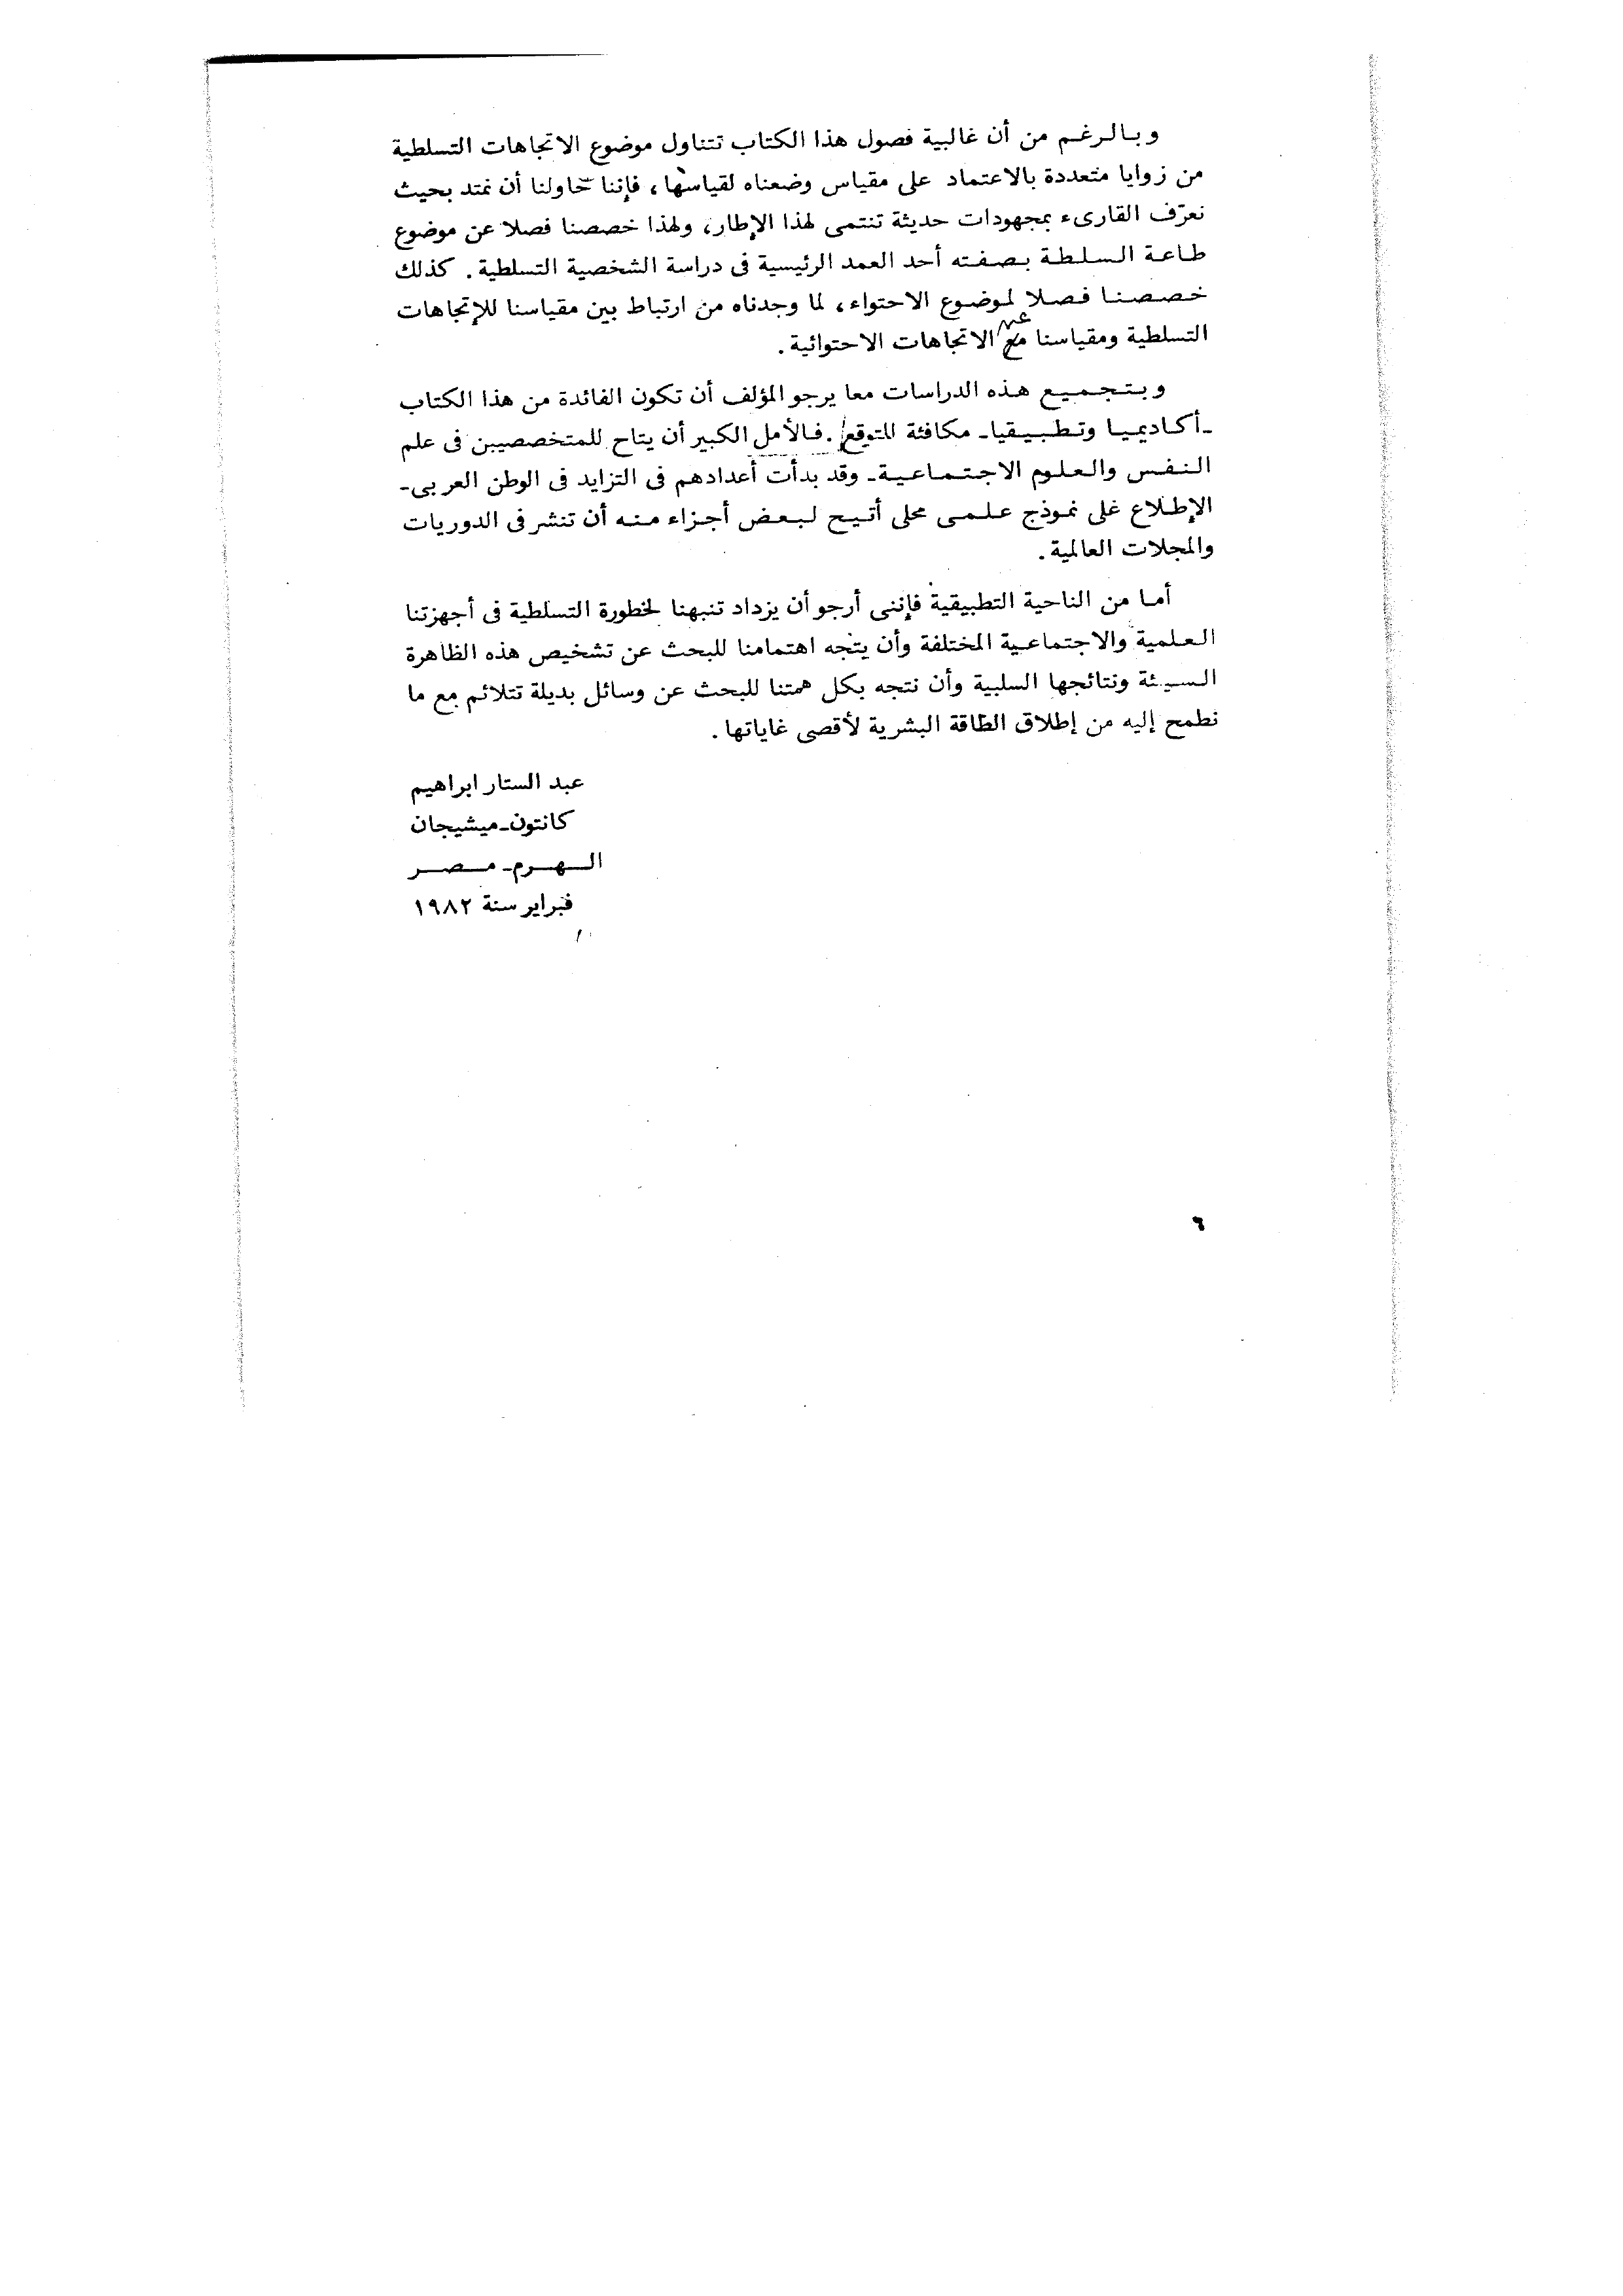 وبالرغم من أن غالبية فصول هذا الكتاب تتناول موضوع الاتجاهات التسلطية
من زوايا متعددة بالاعتماد على مقياس وضعناه لقياسها، فإننا حاولنا أن نمتد بحيث
نعرّف القارىء بمجهودات حديثة تنتمى لهذا الإطار، ولهذا خصصنا فصلا عن موضوع
طاعة السلطة بصفته أحد العمد الرئيسية فى دراسة الشخصية التسلطية. كذلك
خصصنا فصلا لموضوع الاحتواء، لما وجدناه من ارتباط بين مقياسنا للإتجاهات
التسلطية ومقياسنا مع عن الاتجاهات الاحتوائية.
وبتجميع هذه الدراسات معا يرجو المؤلف أن تكون الفائدة من هذا الكتاب
ـ أكاديميا وتطبيقيا ـ مكافئة للتوقع. فالأمل الكبير أن يتاح للمتخصصيين فى علم
النفس والعلوم الاجتماعية ـ وقد بدأت أعدادهم فى التزايد فى الوطن العربى ـ
الإطلاع على نموذج علمى محلى أتيح لبعض أجزاء منه أن تنشر فى الدوريات
والمجلات العالمية.
أما من الناحية التطبيقية فإننى أرجو أن يزداد تنبهنا لخطورة التسلطية فى أجهزتنا
العلمية والاجتماعية المختلفة وأن يتجه اهتمامنا للبحث عن تشخيص هذه الظاهرة
السيئة ونتائجها السلبية وأن نتجه بكل همتنا للبحث عن وسائل بديلة تتلائم مع ما
نطمح إليه من إطلاق الطاقة البشرية لأقصى غاياتها.
عبد الستار ابراهيم
كانتون ـ ميشيجان
الهرم ـ مصر
فبراير سنة ١٩٨٢
٦